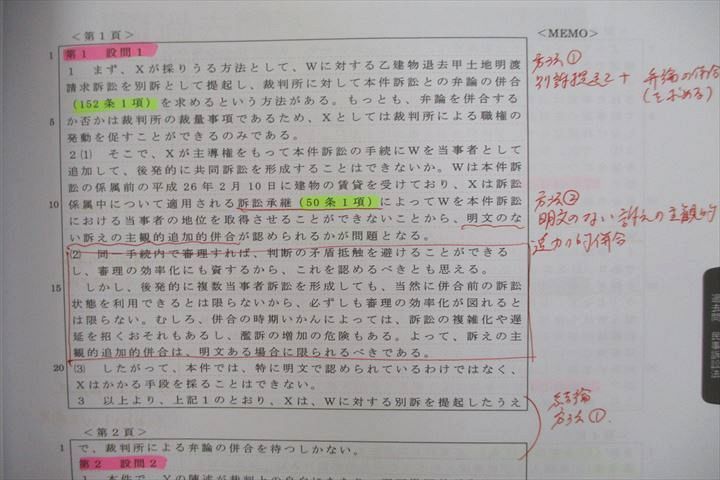 ＜第１頁＞
＜MEMO＞
1 第１　設問１
１　まず、Ｘが採りうる方法として、Ｗに対する乙建物退去甲土地明渡
請求訴訟を別訴として提起し、裁判所に対して本件訴訟との弁論の併合
（152条１項）を求めるという方法がある。もっとも、弁論を併合する
5 か否かは裁判所の裁量事項であるため、Ｘとしては裁判所による職権の
発動を促すことができるのみである。
２⑴　そこで、Ｘが主導権をもって本件訴訟の手続にＷを当事者として
追加して、後発的に共同訴訟を形成することはできないか。Ｗは本件訴
訟の係属前の平成26年２月10日に建物の賃貸を受けており、Ｘは訴訟
10 係属中について適用される訴訟承継（50条１項）によってＷを本件訴訟
における当事者の地位を取得させることができないことから、明文のな
い訴えの主観的追加的併合が認められるかが問題となる。
⑵　同一手続内で審理すれば、判断の矛盾抵触を避けることができる
し、審理の効率化にも資するから、これを認めるべきとも思える。
15 しかし、後発的に複数当事者訴訟を形成しても、当然に併合前の訴訟
状態を利用できるとは限らないから、必ずしも審理の効率化が図れると
は限らない。むしろ、併合の時期いかんによっては、訴訟の複雑化や遅
延を招くおそれもあるし、濫訴の増加の危険もある。よって、訴えの主
観的追加的併合は、明文ある場合に限られるべきである。
20 ⑶　したがって、本件では、特に明文で認められているわけではなく、
Ｘはかかる手段を採ることはできない。
３　以上より、上記１のとおり、Ｘは、Ｗに対する別訴を提起したうえ
＜第２頁＞
1 で、裁判所による弁論の併合を待つしかない。
第２　設問２
方法①
別訴提起＋弁論の併合
（を求める）
方法②
明文のない訴えの主観的
追加的併合
結論
方法①.
過去問　民事訴訟法